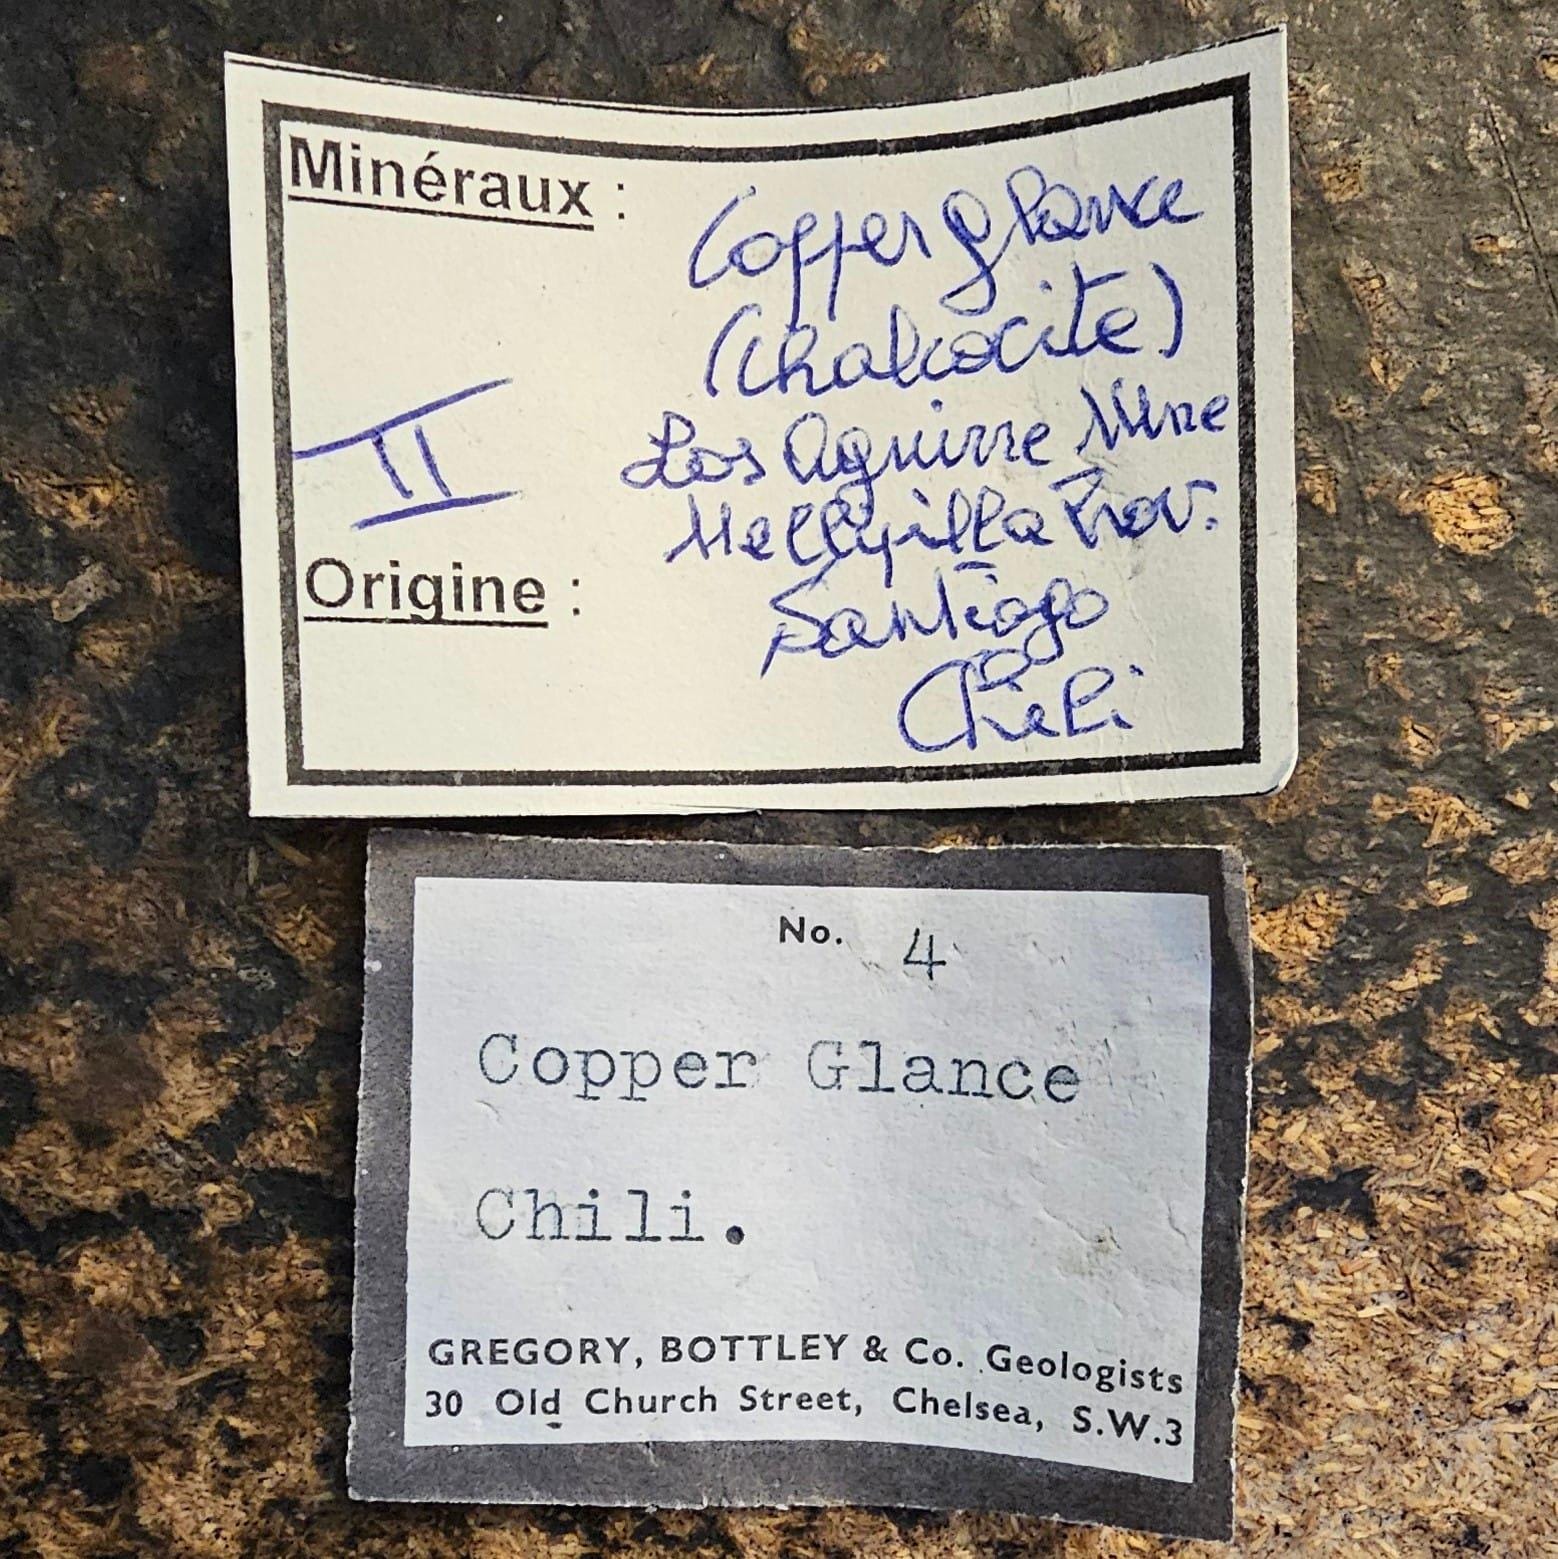 Minéraux :
Copper glance
(Chalcocite)
Los Aguirre Mine
II
Mellypilla Prov.
Origine :
Santiago
Chili
No. 4
Copper Glance
Chili.
GREGORY, BOTTLEY & Co. Geologists
30 Old Church Street, Chelsea, S.W.3